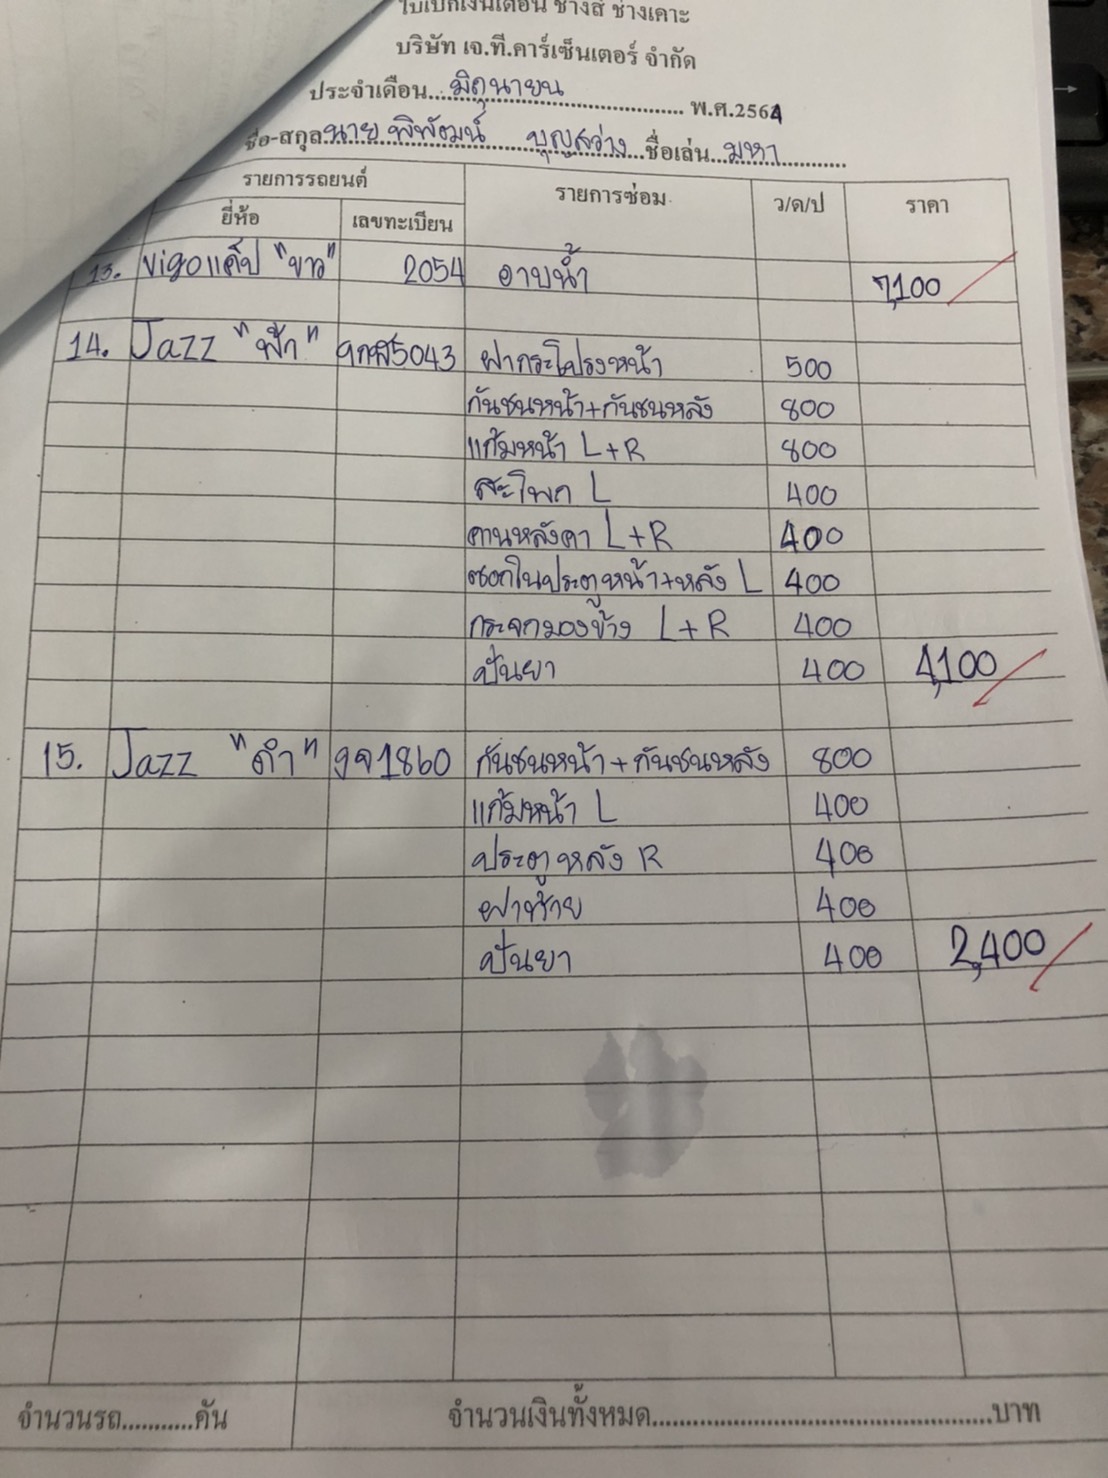 ใบเบิกเงินเดือน ช่างสี ช่างเคาะ
บริษัท เจ.ที.คาร์เซ็นเตอร์ จำกัด
ประจำเดือน...มิถุนายน... พ.ศ.2564
ชื่อ-สกุล นาย พิพัฒน์ บุญสว่าง...ชื่อเล่น...มหา...
รายการรถยนต์ รายการซ่อม ว/ด/ป ราคา
ยี่ห้อ เลขทะเบียน
13. Vigoแค็ป "ขาว" 2054 อาบน้ำ 7,100
14. Jazz "ฟ้า" 5043 ฝากระโปรงหน้า 500
กันชนหน้า+กันชนหลัง 800
แก้มหน้า L+R 800
สะโพก L 400
คานหลังคา L+R 400
ซอกในประตูหน้า+หลัง L 400
กระจกมองข้าง L+R 400
ปั่นยา 400 4,100
15. Jazz "ดำ" 1860 กันชนหน้า+กันชนหลัง 800
แก้มหน้า L 400
ประตูหลัง R 400
ฝาท้าย 400
ปั่นยา 400 2,400
จำนวนรถ...........คัน จำนวนเงินทั้งหมด..................................................บาท